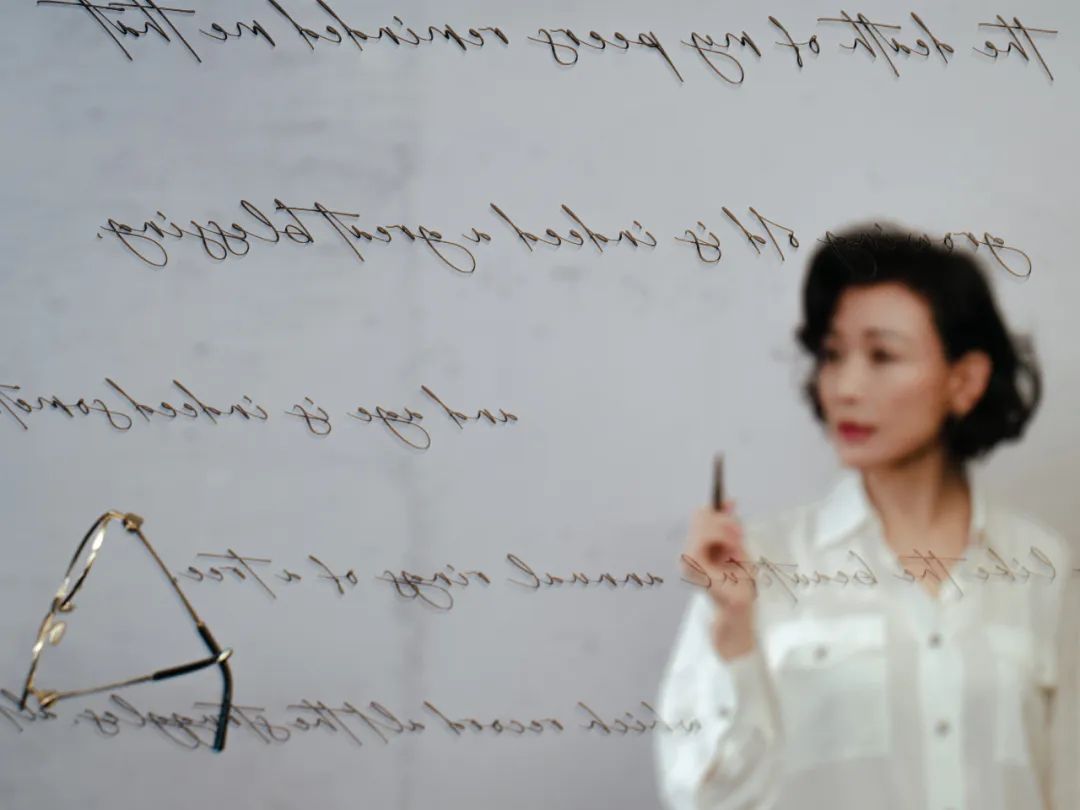 the death of my peers reminded me that
growing old is indeed a great blessing.
and age is indeed
Like the beautiful annual rings of a tree
which record all the struggles,